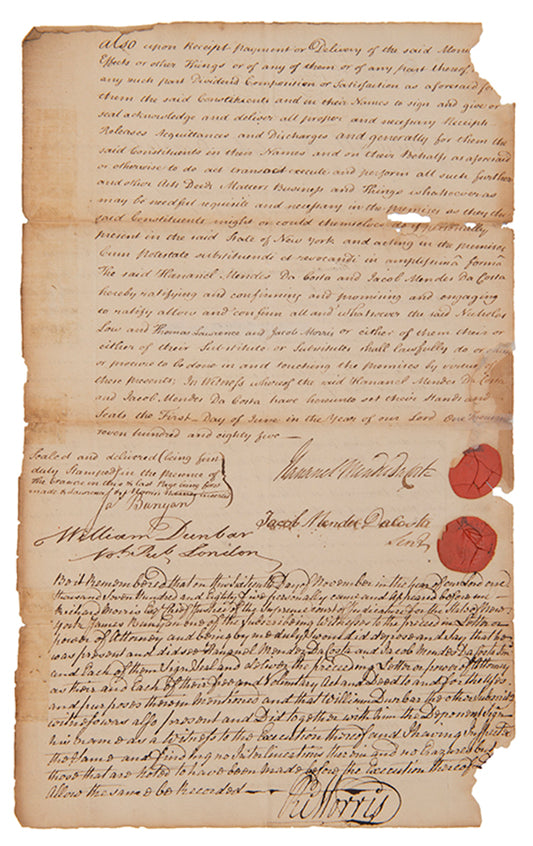 Also upon Receipt Payment or Delivery of the said Mon
Effects or other Things or of any of them or of any part thereof
any such part Dividend Composition or Satisfaction as aforesaid for
them the said Constituents and in their Names to sign and give or
seal acknowledge and deliver all proper and necessary Receipts
Releases Acquittances and Discharges and generally for them the
said Constituents in their Names and on their Behalfs as aforesaid
or otherwise to do act transact execute and perform all such further
and other Acts Deeds Matters Business and Things whatsoever as
may be needful requisite and necessary in the Premises as they the
said Constituents might or could themselves do if personally
present in the said State of New York and acting in the premises
Cum potestate substituendi et revocandi in amplissima forma
The said Hananel Mendes Da Costa and Jacob Mendes Da Costa
hereby ratifying and confirming and promising and engaging
to ratify allow and confirm all and whatsoever the said Nicholas
Low and Thomas Lawrence and Jacob Morris or either of them their or
either of their Substitute or Substitutes shall lawfully do or
or procure to be done in and touching the premises by virtue of
these presents. In Witness whereof the said Hananel Mendes Da Costa
and Jacob Mendes Da Costa have hereunto set their Hands and
Seals the First Day of June in the Year of our Lord One Thousand
seven hundred and eighty five —
Sealed and delivered (being first
duly Stamped) in the presence of
the
made &
Ja Bunyan
Hananel Mendes Da Costa
William Dunbar
Noty Pub London
Jacob Mendes DaCosta
Senr
Be it Remembered that on the Day of November in the year of our Lord one
thousand Seven Hundred and Eighty five personally came and appeared before me
Richard Morris Esqr Chief Justice of the Supreme Court of Judicature for the State of New
York James Bunyan one of the Subscribing Witnesses to the preceding Letter or
power of Attorney and being by me duly Sworn did depose and say that he
was present and did see Hananel Mendez Da Costa and Jacob Mendez Da Costa Senr
and Each of them Sign Seal and deliver the preceeding Letter or power of Attorney
as their and Each of their free and Voluntary Act and Deed to and for the Uses
and purposes therein Mentioned and that William Dunbar the other Subscribing
witness was also present and Did together with him the Deponent Sign
his name as a Witness to the Execution thereof and I having Inspected
the Same and finding no Interlineations therein and no Erazures but
those that are Noted to have been made before the Execution thereof
Allow the same to be Recorded —
Ri Morris